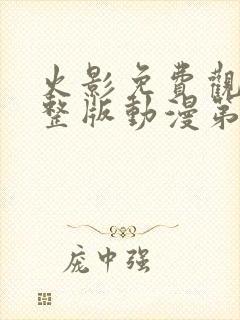 火影免費觀
整版動漫第
庞中强